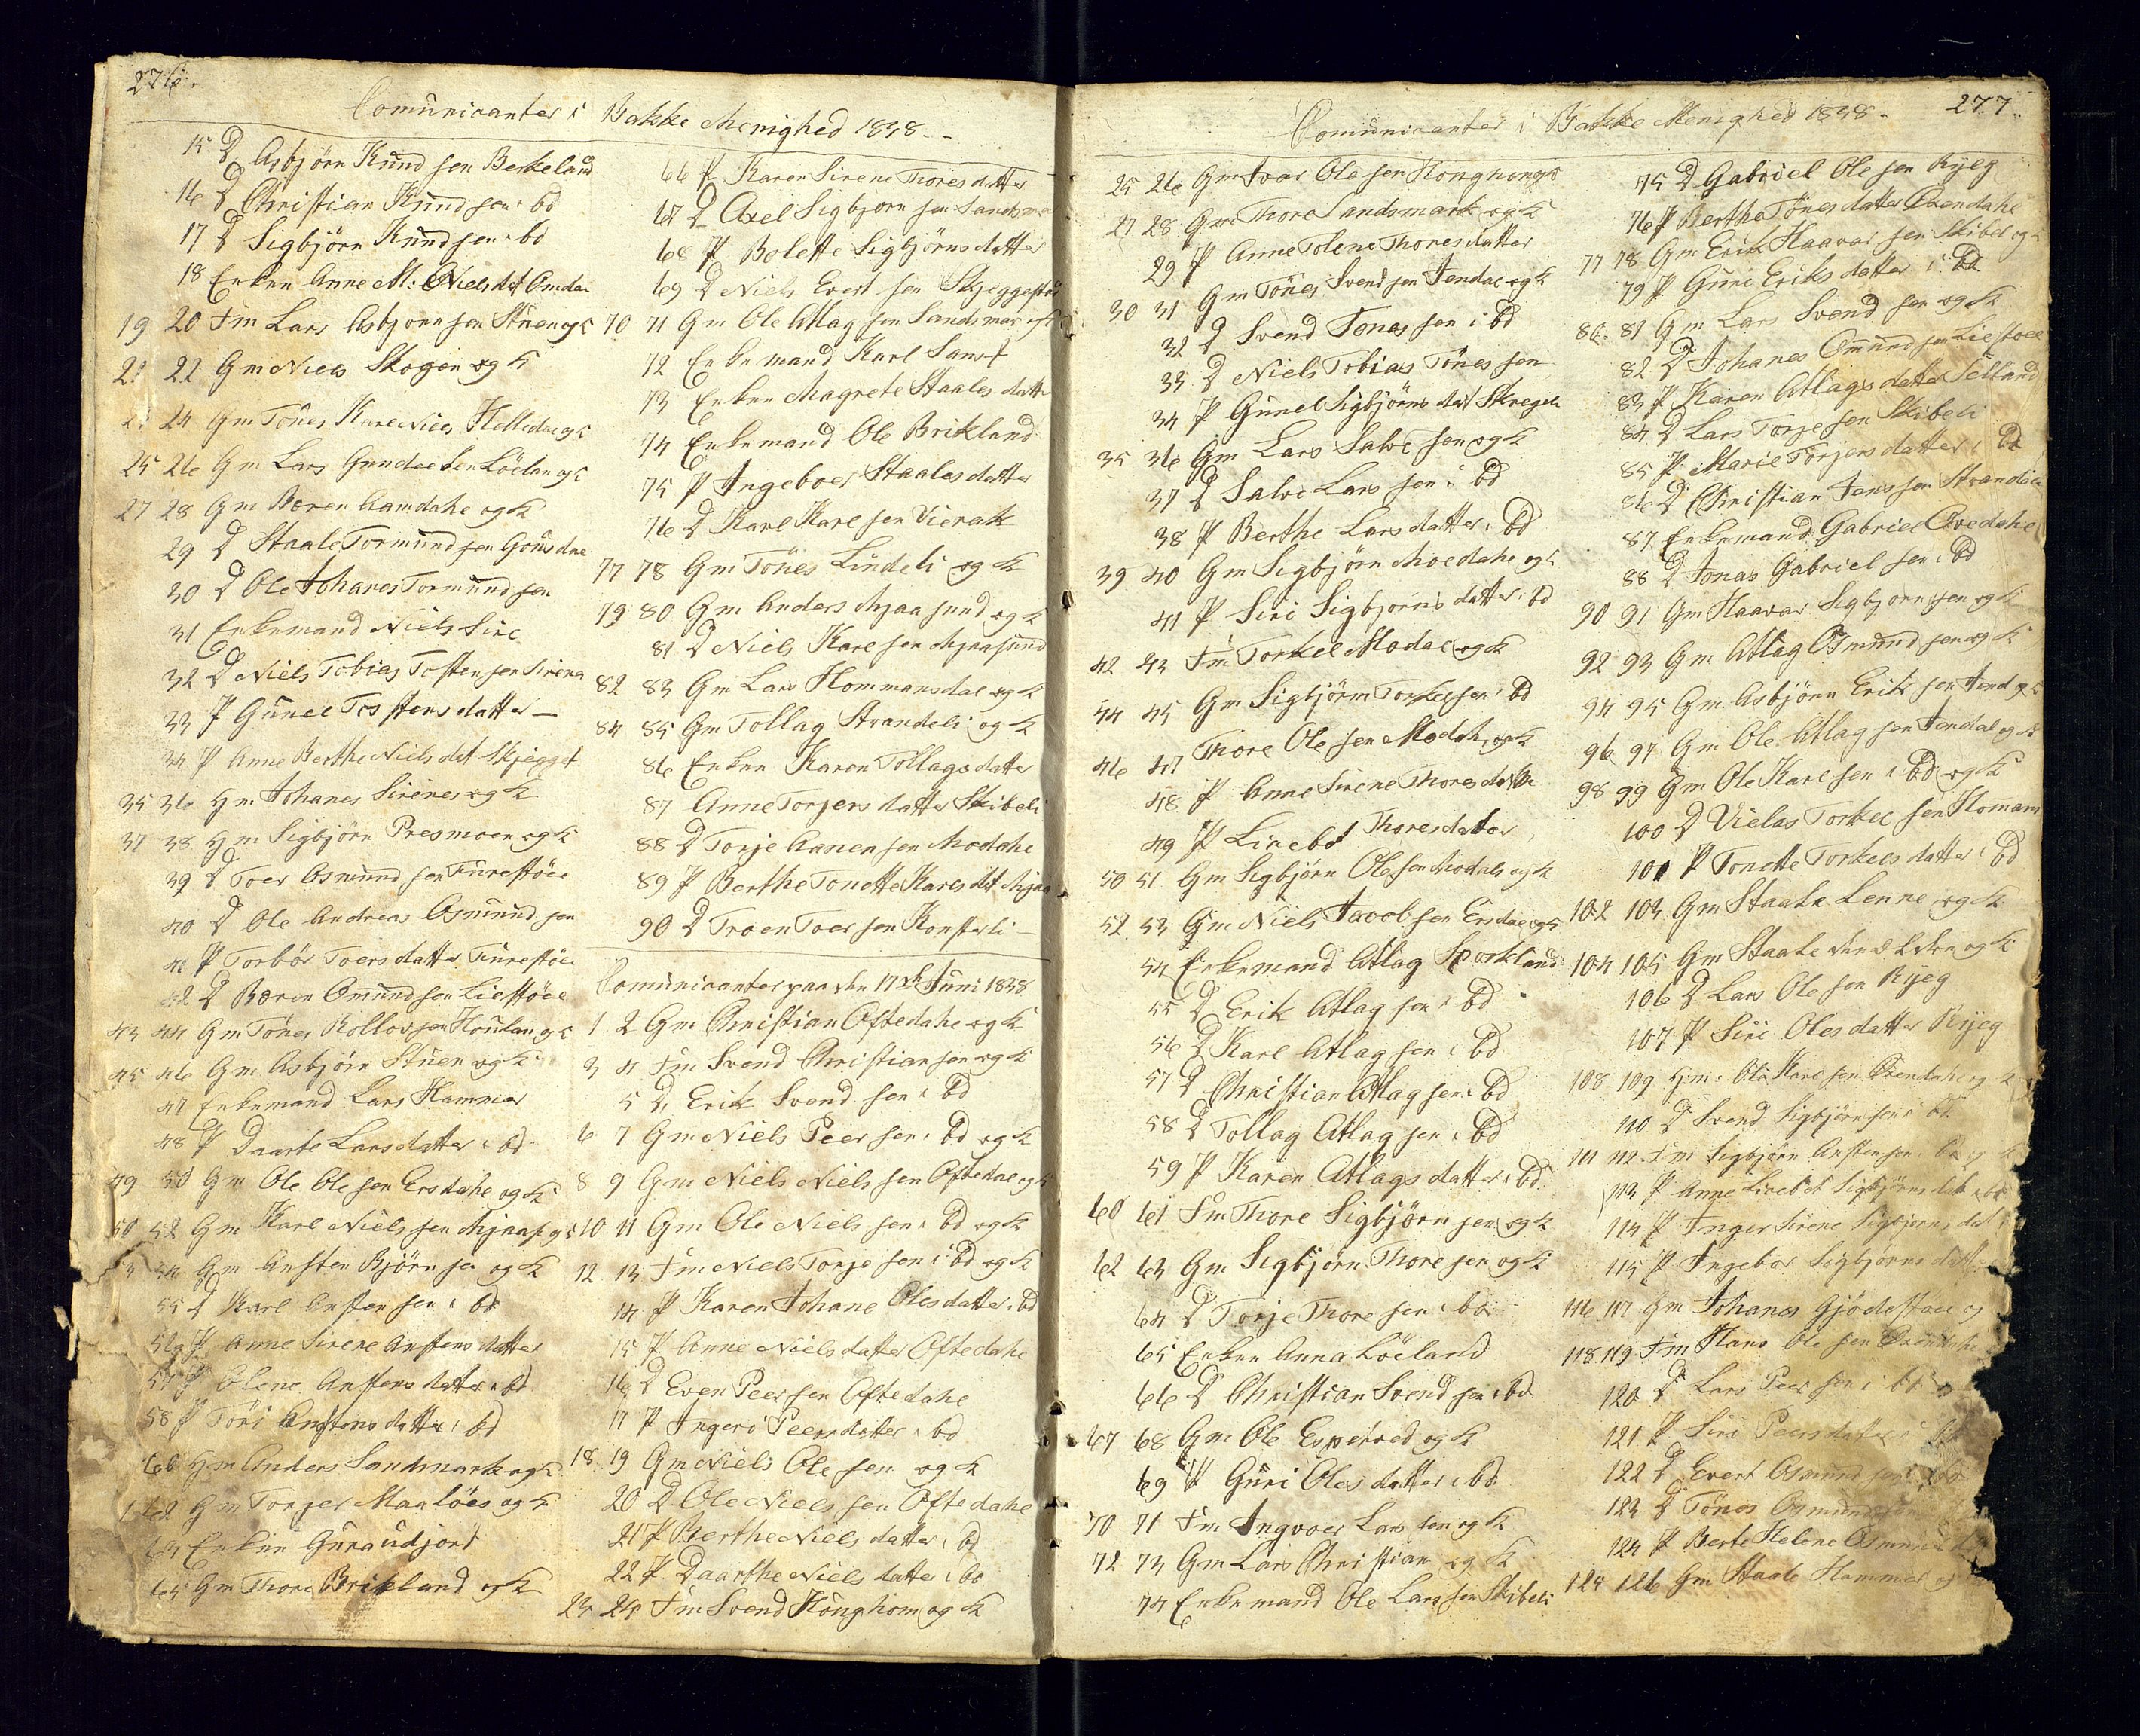 276.
Comunicanter i Bakke Menighed 1838.
15 D Asbjörn Knud sen Berkeland
16 D Christian Knud sen i bd
17 D Sigbjörn Knud sen i bd
18 Enken Anne M: Niels dt Omdal
19 20 Fm Lars Asbjorn sen Stuen og K
22 Gm Niels Skogen og K
24 Gm Tönes Karenies Helledae og K
25 26 Gm Lars Gundersen Löelan og K
27 28 Gm Bæren Aamdahe og K
29 D Staale Tormund sen Gousdae
30 D Ole Johanes Tormund sen
31 Enkemand Niels Sire
32 D Niels Tobias Tosten sen Sirena
33 P Gunel Tostens datter
34 P Anne Berthe Niels dt Skjegget
35 36 Hm Johanes Sirenes og K
37 38 Hm Sigbjörn Presmoen og K
39 D Toer Osmund sen Furestöee
40 D Ole Andreas Osmund sen
41 P Torbör Toers datter Furestöee
42 D Bæren Omund sen Liestöee
43 44 Gm Tönes Rollov sen Houlan og K
45 46 Gm Asbjörn Stuen og K
47 Enkemand Lars Hammer
48 P Daarte Lars datter i bd
49 50 Gm Ole Ole sen Ersdahe og K
52 Gm Karl Niels sen Mjaas og K
54 Gm Ansten Björn sen og K
55 D Karl Ansten sen i bd
56 P Anne Sirene Anstens datter
57 P Olene Anstens datter i bd
58 P Töri Anstens datter i bd
60 Hm Anders Sandsmark og K
62 Gm Torger Maalöes og K
Enken Guraudjord
65 Gm Thore Brikland og K
66 P Karen Sirene Thores datter
67 D Axel Sigbjorn sen Sandsma
68 P Bolette Sigbjörns datter
69 D Niels Evert sen Skjeggestö
70 71 Gm Ole Atlag sen Sandsmar og K
72 Enkemand Karl Samst
73 Enken Magrete Staales datter
74 Enkemand Ole Brikland
75 P Ingeboer Staales datter
76 D Karl Karl sen Vierak
77 78 Gm Tönes Lindeli og K
79 80 Gm Anders Mjaasund og K
81 D Niels Karl sen Mjaasund
82 83 Gm Lars Hommansdal og K
84 85 Gm Tollag Strandeli og K
86 Enken Karen Tollags datter
87 Anne Torjers datter Skibeli
88 D Torje Aanen sen Modahe
89 P Berthe Tonette Karls dt Mjaa
90 D Troen Toer sen Konsteli
Comunicanter paa den 17de Juni 1838
1 2 Gm Christian Oftedahe og K
3 4 Fm Svend Christian sen og K
5 D Erik Svend sen i bd
6 7 Gm Niels Peer sen i bd og K
8 9 Gm Niels Niels sen Oftedae og K
10 11 Gm Ole Niels sen i bd og K
12 13 Fm Niels Torje sen i bd og K
14 P Karen Johane Oles datter i bd
15 P Anne Niels datter Oftedahe
16 D Even Peer sen Oftedahe
17 P Ingeri Peers datter i bd
18 19 Gm Niels Ole sen og K
20 D Ole Niels sen Oftedahe
21 P Berthe Niels datter i bd
22 P Daarthe Niels datter i bd
23 24 Fm Svend Hönghom og K
Comunicanter i Bakke Menighed 1838.
277.
25 26 Gm Ivar Ole sen Honghom og K
27 28 Gm Thore Sandsmark og K
29 P Anne Tolene Thores datter
30 31 Gm Tönes Svend sen Jendal og K
32 D Svend Tönes sen i bd
33 D Niels Tobias Tönes sen
34 P Gunel Sigbjörns dat Skregeli
35 36 Gm Lars Salve sen og K
37 D Salve Lars sen i bd
38 P Berthe Lars datter i bd
39 40 Gm Sigbjörn Moedahe og K
41 P Siri Sigbjorns datter i bd
42 43 Fm Torkel Modal og K
44 45 Gm Sigbjörn Torkel sen i bd
46 47 Thore Ole sen Modahe og K
48 P Anne Sirene Thores datter
49 P Livebet Thores datter
50 51 Gm Sigbjörn Ole sen Modals og K
52 53 Gm Niels Jacob sen Ersdae og K
54 Enkemand Atlag Sporkland
55 D Erik Atlag sen i bd
56 D Karl Atlag sen i bd
57 D Christian Atlag sen i bd
58 D Tollag Atlag sen i bd
59 P Karen Atlags datter i bd
60 61 Fm Thore Sigbjörn sen og K
62 63 Gm Sigbjörn Thore sen og K
64 D Torje Thore sen i bd
65 Enken Anna Löeland
66 D Christian Svend sen i bd
67 68 Gm Ole Espetved og K
69 P Guri Oles datter i bd
70 71 Fm Ingvoer Lars sen og K
72 73 Gm Lars Christian og K
74 Enkemand Ole Lars sen Skibeli
75 D Gabriel Ole sen Ryeg
76 P Berthe Tönes datter Ovendahe
77 78 Gm Erik Haavar sen Skibel og K
79 P Guri Eriks datter i bd
80 81 Gm Lars Svend sen og K
82 D Johanes Omund sen Liestoee
83 P Karen Atlags datter Selland
84 D Lars Torje sen Skibeli
85 P Marie Torjers datter i bd
86 D Christian Jens sen Strandeli
87 Enkemand Gabriel Ovedahe
88 D Jonas Gabriel sen i bd
90 91 Gm Haavar Sigbjorn sen og K
92 93 Gm Atlag Osmund sen og K
94 95 Gm Asbjörn Erik sen Jend og K
96 97 Gm Ole Atlag sen Jendal og K
98 99 Gm Ole Karl sen i bd og K
100 D Vielas Torkel sen Homam
101 P Tonette Torkels datter i bd
102 103 Gm Staale Lenne og K
104 105 Gm Staale og K
106 D Lars Ole sen Ryeg
107 P Siri Oles datter Ryeg
108 109 Hm Ole Karl sen Ovendahe og K
110 D Svend Sigbjörn sen i bd
111 112 Fm Sigbjörn Ansten sen i bd og K
113 P Anne Livebet Sigbjörns dat i bd
114 P Inger Sirene Sigbjorns dat
115 P Ingebor Sigbjörns datter
116 117 Gm Johanes Gjödestöee og
118 119 Fm Hans Ole sen Ovendahe
120 D Lars Peer sen i bd
121 P Siri Peers datter i bd
122 D Evert Osmund sen i bd
123 D Tönes Osmund sen
124 P Berte Helene Osmunds
125 126 Gm Staale Hammer og